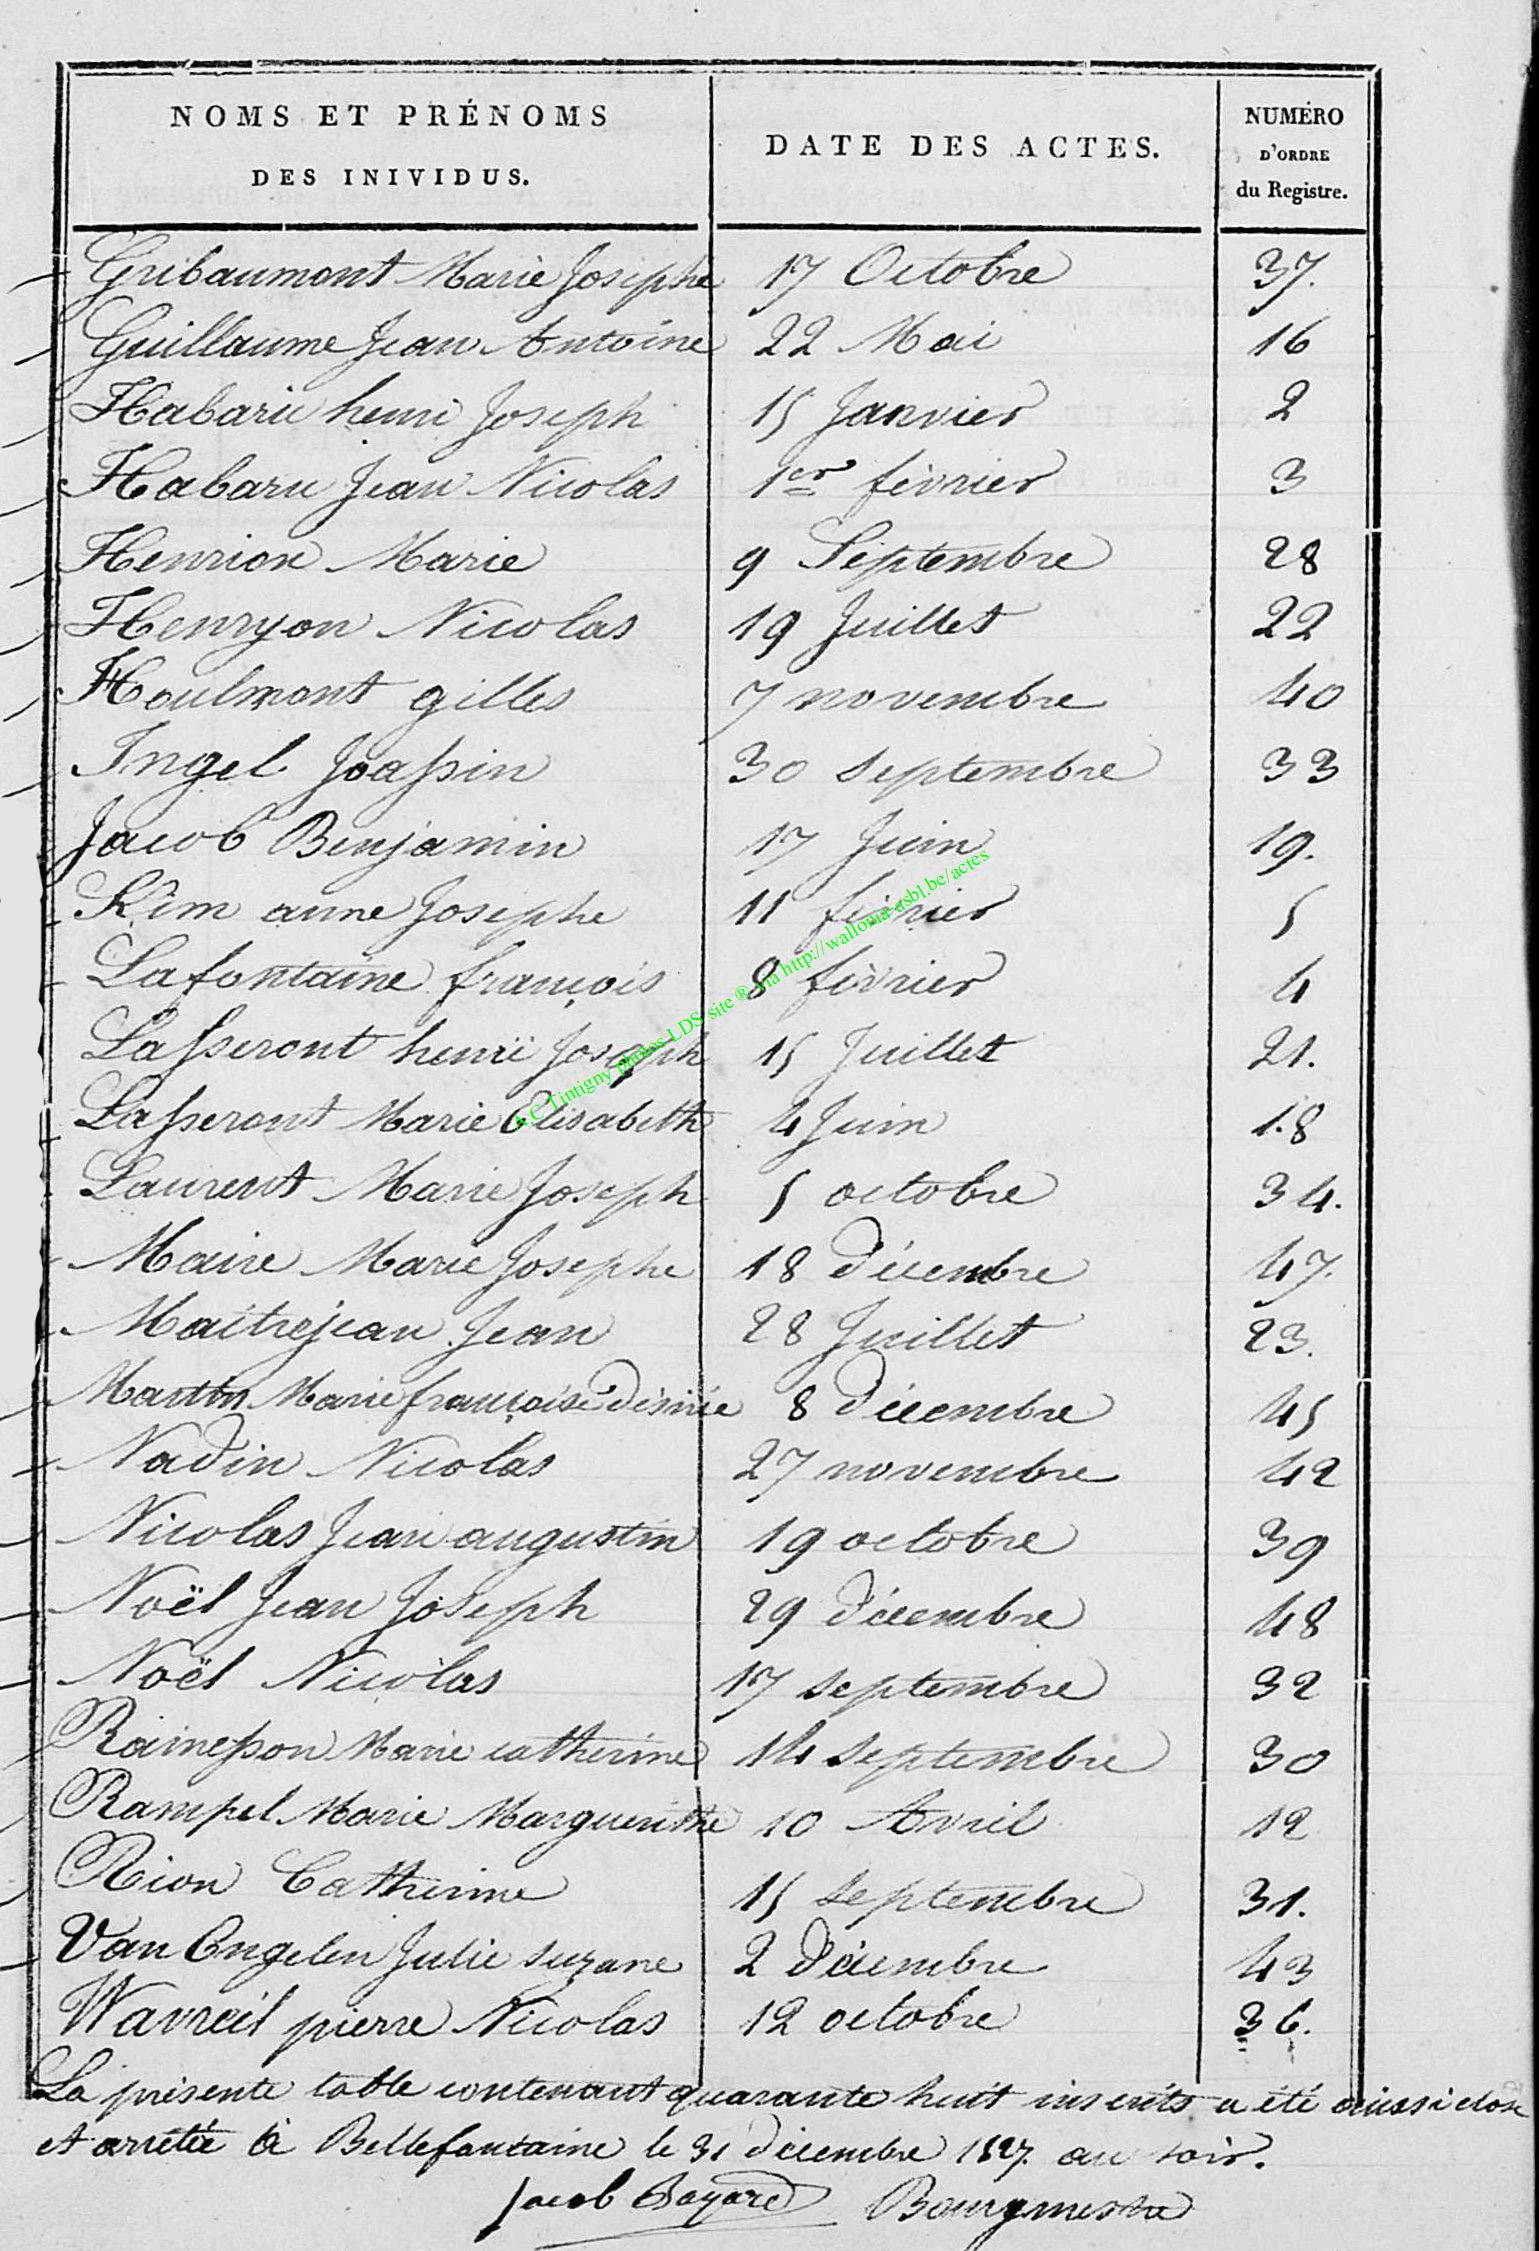 NOMS ET PRÉNOMS
DES INIVIDUS.
DATE DES ACTES.
NUMÉRO
D'ORDRE
du Registre.
Gribaumont Marie Josephe 17 Octobre 37.
Guillaume Jean Antoine 22 Mai 16
Habaru henri Joseph 15 Janvier 2
Habaru Jean Nicolas 1er février 3
Henrion Marie 9 Septembre 28
Henryon Nicolas 19 Juillet 22
Houlmont gilles 7 novembre 40
Ingel Joassin 30 septembre 33
Jacob Benjamin 17 Juin 19.
Kim anne Josephe 11 février 5
Lafontaine françois 8 février 4
Lasseront henri Joseph 15 Juillet 21.
Lasseront Marie Elisabeth 4 Juin 18
Laurent Marie Joseph 5 octobre 34.
Maire Marie Josephe 18 décembre 47.
Maitrejean Jean 28 Juillet 23.
Martin Marie françoise désirée 8 décembre 45
Nadin Nicolas 27 novembre 42
Nicolas Jean augustin 19 octobre 39
Noël Jean Joseph 29 décembre 48
Noël Nicolas 17 septembre 32
Rainesson Marie catherine 14 septembre 30
Rampel Marie Marguerithe 10 Avril 12
Rion Catherine 15 septembre 31.
Van Engelen Julie suzane 2 décembre 43
Wavreil pierre Nicolas 12 octobre 36.
La présente table contenant quarante huit inscrits a été aussi close
et arrêtée à Bellefontaine le 31 décembre 1827. au soir.
Jacob Bayard Bourgmestre
A.C Tintigny photos LDS site ® via http://wallonia-asbl.be/actes